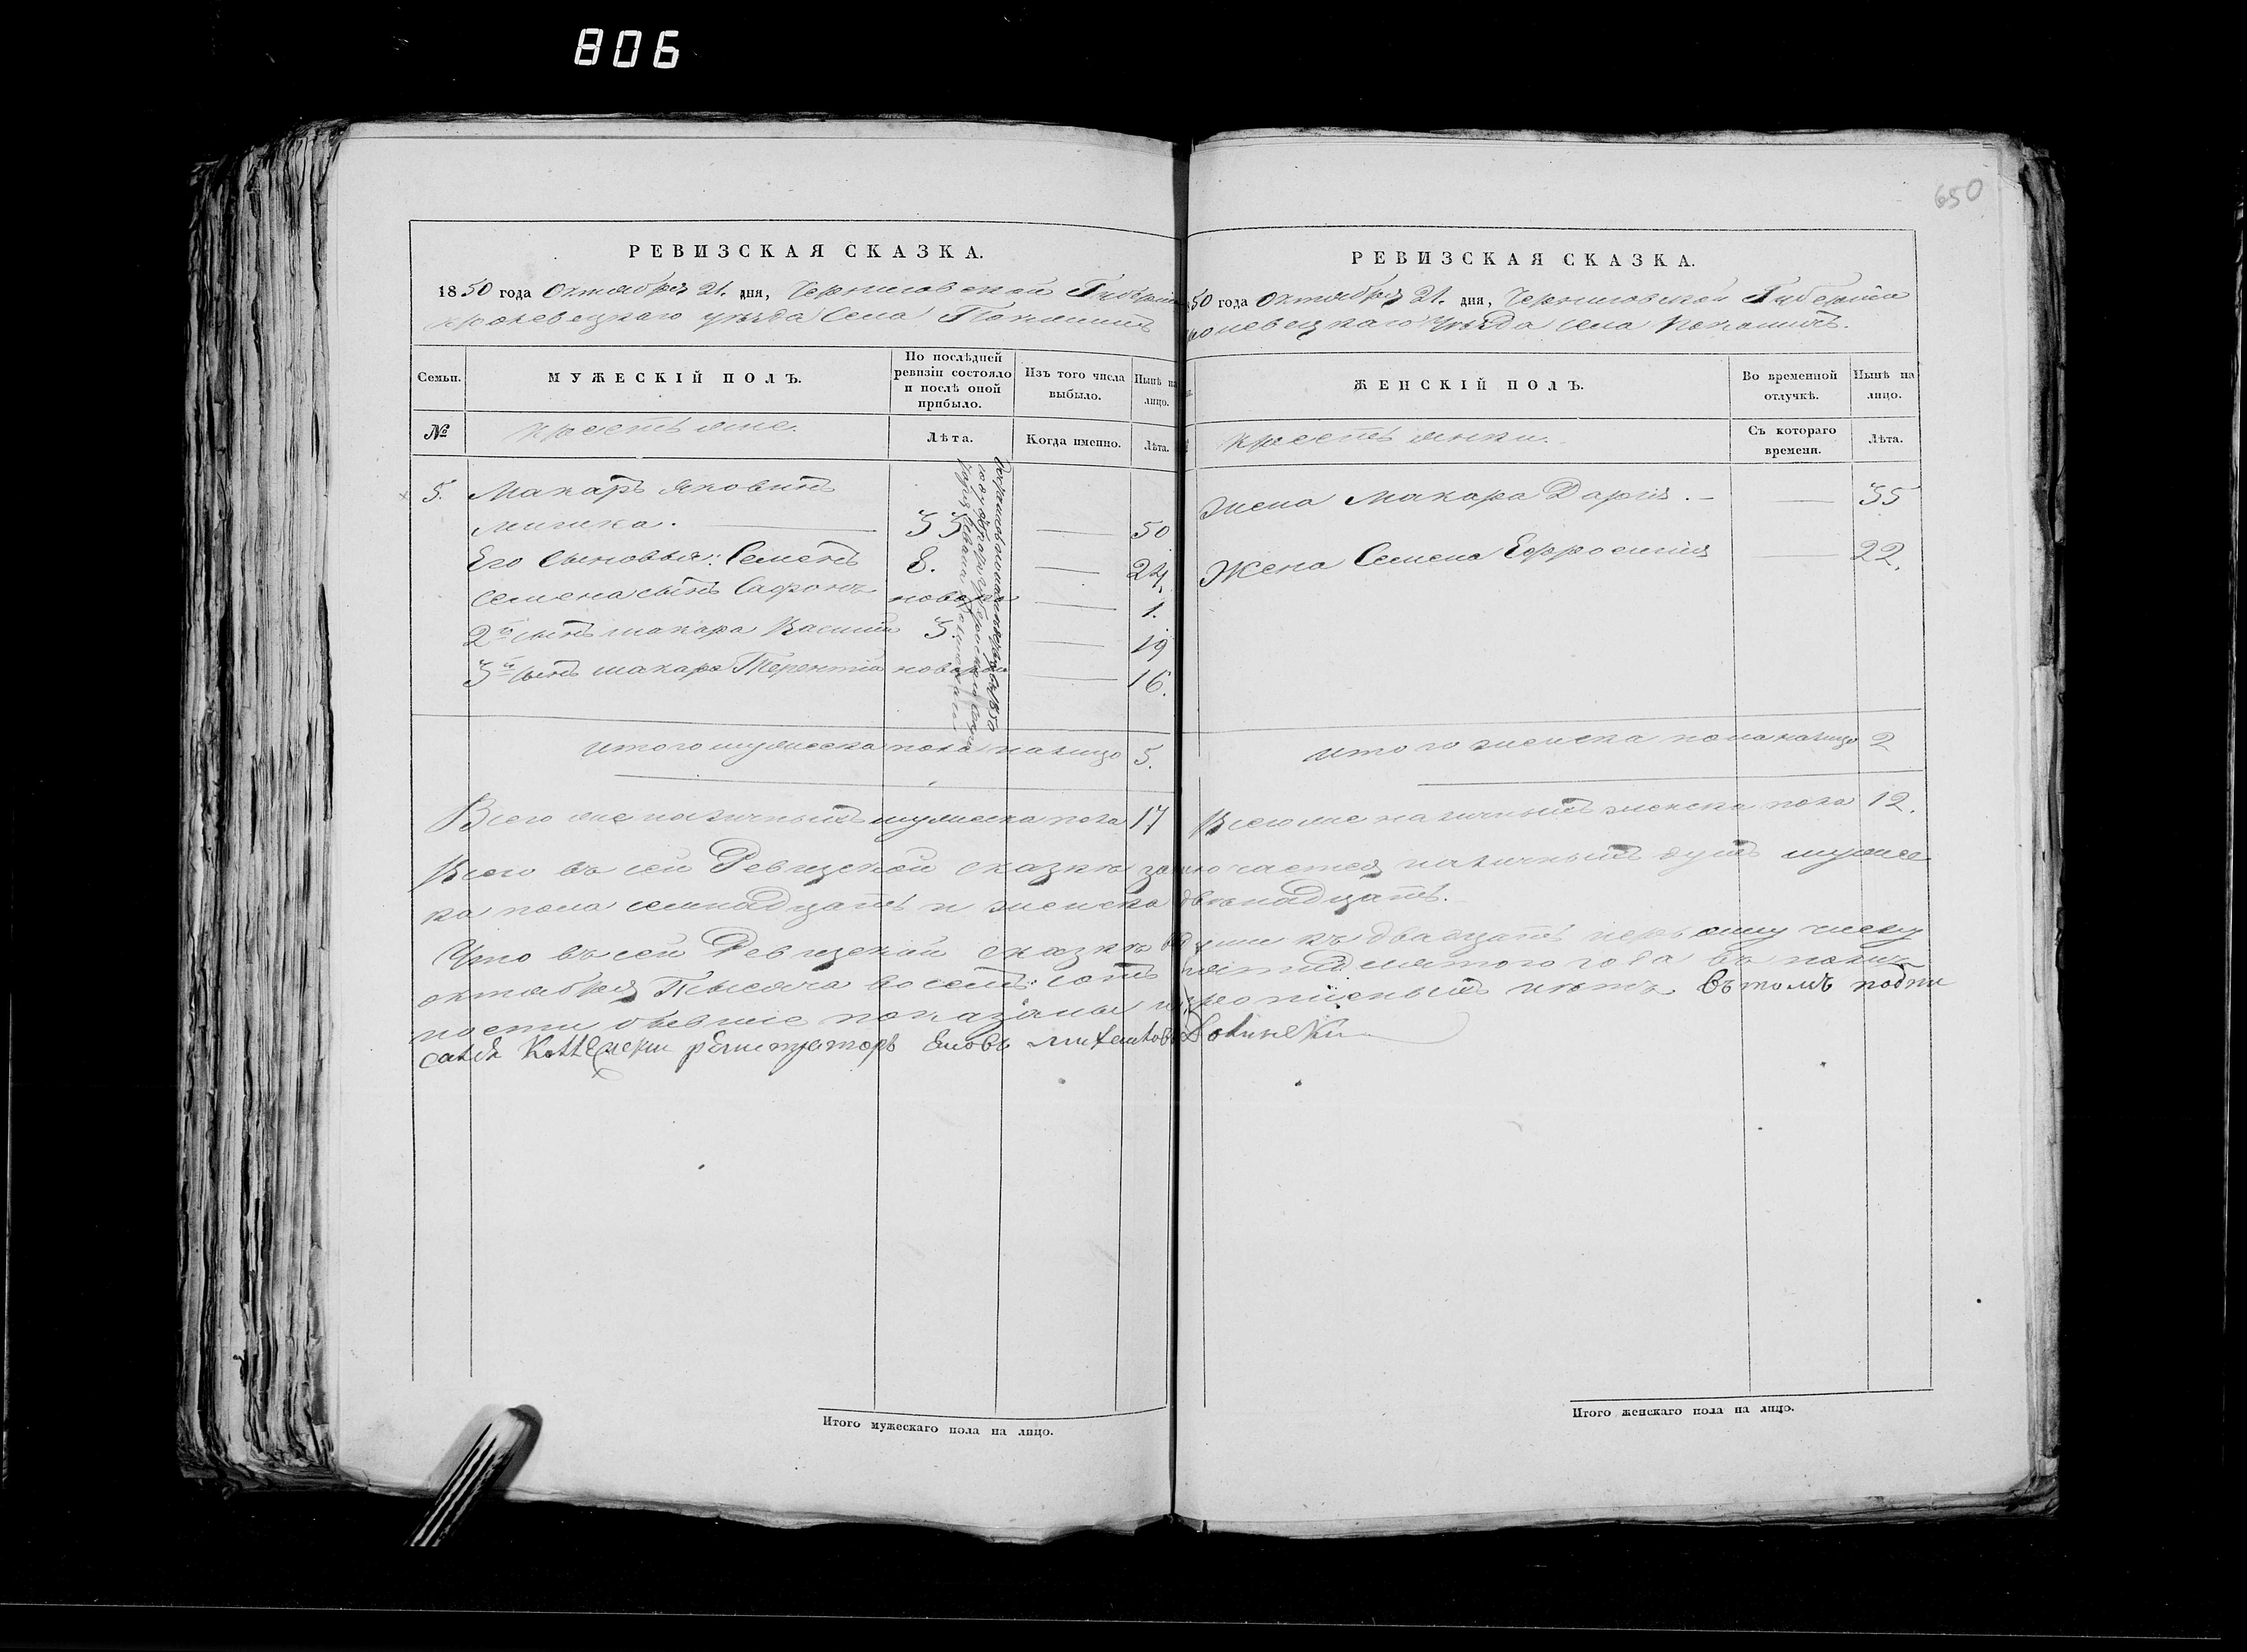 806
650
РЕВИЗСКАЯ СКАЗКА.
1850 года Октября 21. дня, Черниговской Губерніи
кролевецкаго уѣзда Села
Семьи.
МУЖЕСКІЙ ПОЛЪ.
По послѣдней ревизіи состояло и послѣ оной прибыло.
Изъ того числа выбыло.
Нынѣ на лицо.
№
крестьяне.
Лѣта.
Когда именно.
Лѣта.
5. Макаръ Яковивъ
35 50
Его Сыновья: Семенъ 8. 24.
Семена сынъ Сафонъ новоро 1.
2й сынъ макара Василій 3. 19
3й сынъ макара Терентій новоро 16.
итого мужеска пола налицо 5.
Всего же наличныхъ мужеска пола 17
РЕВИЗСКАЯ СКАЗКА.
50 года Октября 21. дня, Черниговской Губерніи
ролевецкаго Уѣзда села
ЖЕНСКІЙ ПОЛЪ.
Во временной отлучкѣ.
Нынѣ на лицо.
крестьянки.
Съ котораго времени.
Лѣта.
Жена Макара Дарія. — 35
Жена Семена Ефросинія 22.
итого женска пола налицо 2
Всего же наличныхъ женска пола 12.
Всего въ сей Ревизской сказкѣ заключается наличныхъ душъ мужес
ка пола семнадцать и женска двѣнадцать.
Что въ сей Ревизской сказкѣ къ двадцать первому числу
октября Тысяча восемь сотъ пятидесятого года въ налич
ности бывшіе показаны и прописныхъ нѣтъ въ томъ подпи
сался Коллежски регистраторъ
Итого мужескаго пола на лицо.
Итого женскаго пола на лицо.